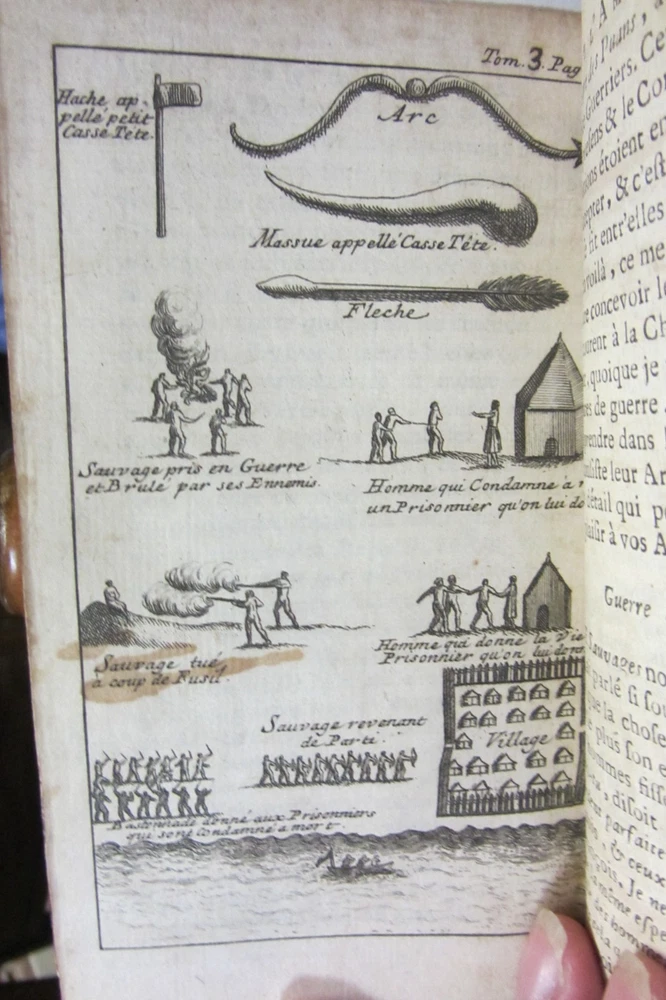 Tom. 3. Pag
Hache ap-
pellé petit
Casse Tête.
Arc
Massue appellé Casse Tête.
Fleche
Sauvage pris en Guerre
et Brulé par ses Ennemis.
Homme qui Condamne a
un Prisonnier qu'on lui do
Sauvage tué
à coup de Fusil.
Homme qui donne la Vie
Prisonnier qu'on lui donn
Sauvage revenant
de Parti.
Village
Bastonnade donné aux Prisonniers
qui sont Condamné a mort.
des Puans,
Guerriers. Ce
& le Co
étoient en
, & c'est
fit entr'elles
voilà, ce me
concevoir le
à la Ch
, quoique je
de guerre
dans
leur Ar
détail qui p
à vos A
Guerre
Sauvages no
parlé si sou
que la chose
plus son e
, disoit
parfaite
, & ceux
. Je ne
même espe
des hommes